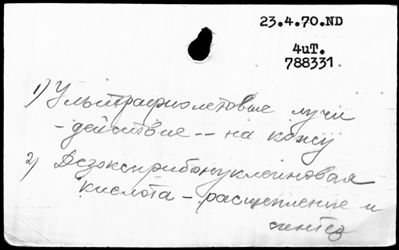 23.4.70.ND
4uT.
788331.
1) Ультрафиолетовые лучи
- действие -- на кожу
2) Дезоксирибонуклеиновая
кислота - расщепление и
синтез